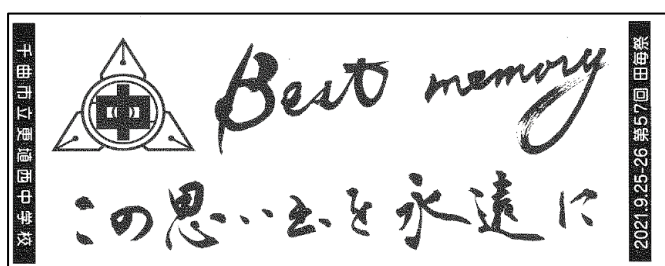 千曲市立更埴西中学校
中
Best memory
この思い出を永遠に
2021.9.25-26 第57回 田毎祭